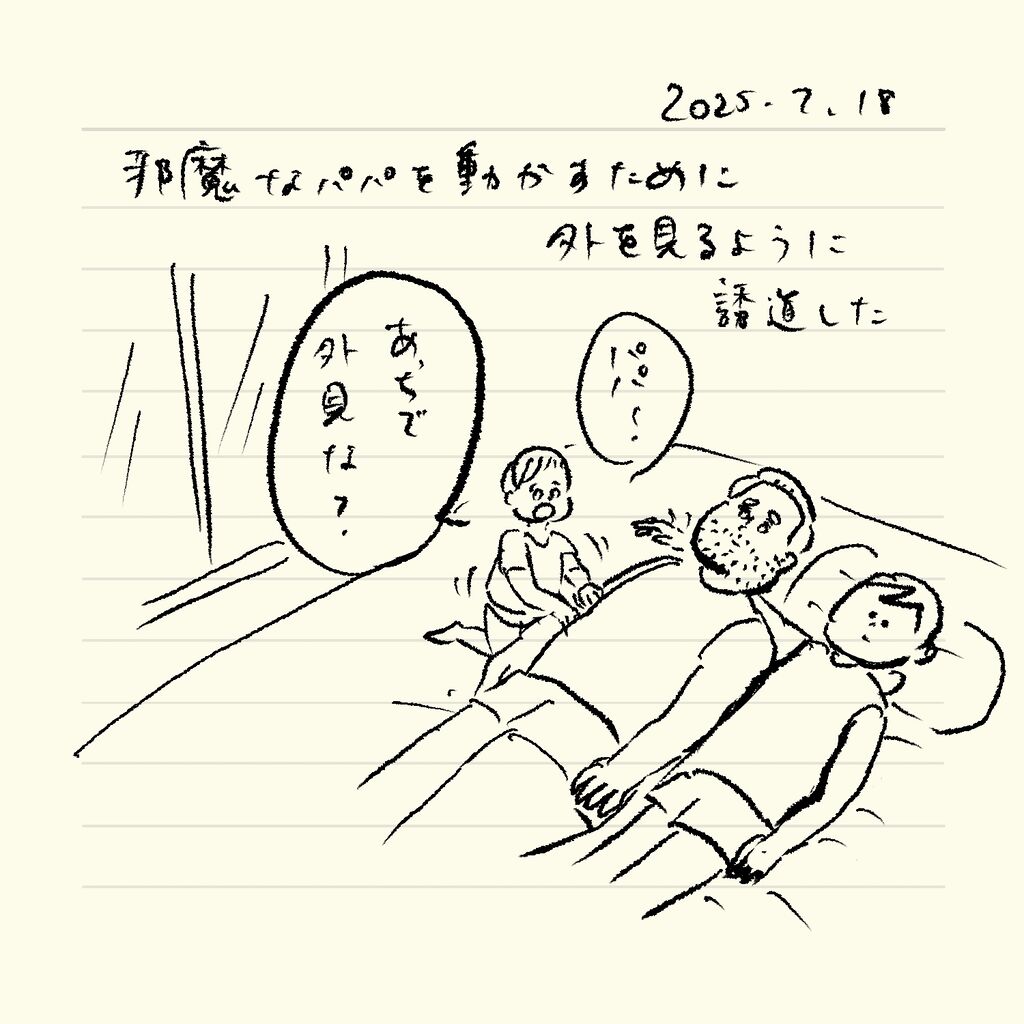 2025.7.18
邪魔なパパを動かすために
外を見るように
誘導した
パパ!
あっちで
外見な?